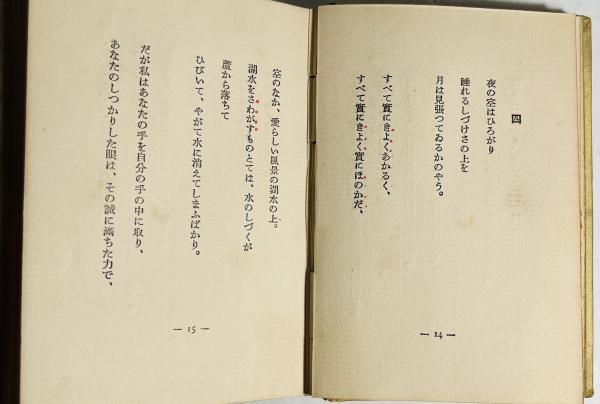 四
夜の空はひろがり
睡れるしづけさの上を
月は見張つてゐるかのやう。
すべて實にきよくあかるく、
すべて實にきよく實にほのかだ、
— 14 —
空のなか、愛らしい風景の湖水の上。
湖水をさわがすものとては、水のしづくが
蘆から落ちて
ひびいて、やがて水に消えてしまふばかり。
だが私はあなたの手を自分の手の中に取り、
あなたのしつかりした眼は、その誠に満ちた力で、
— 15 —